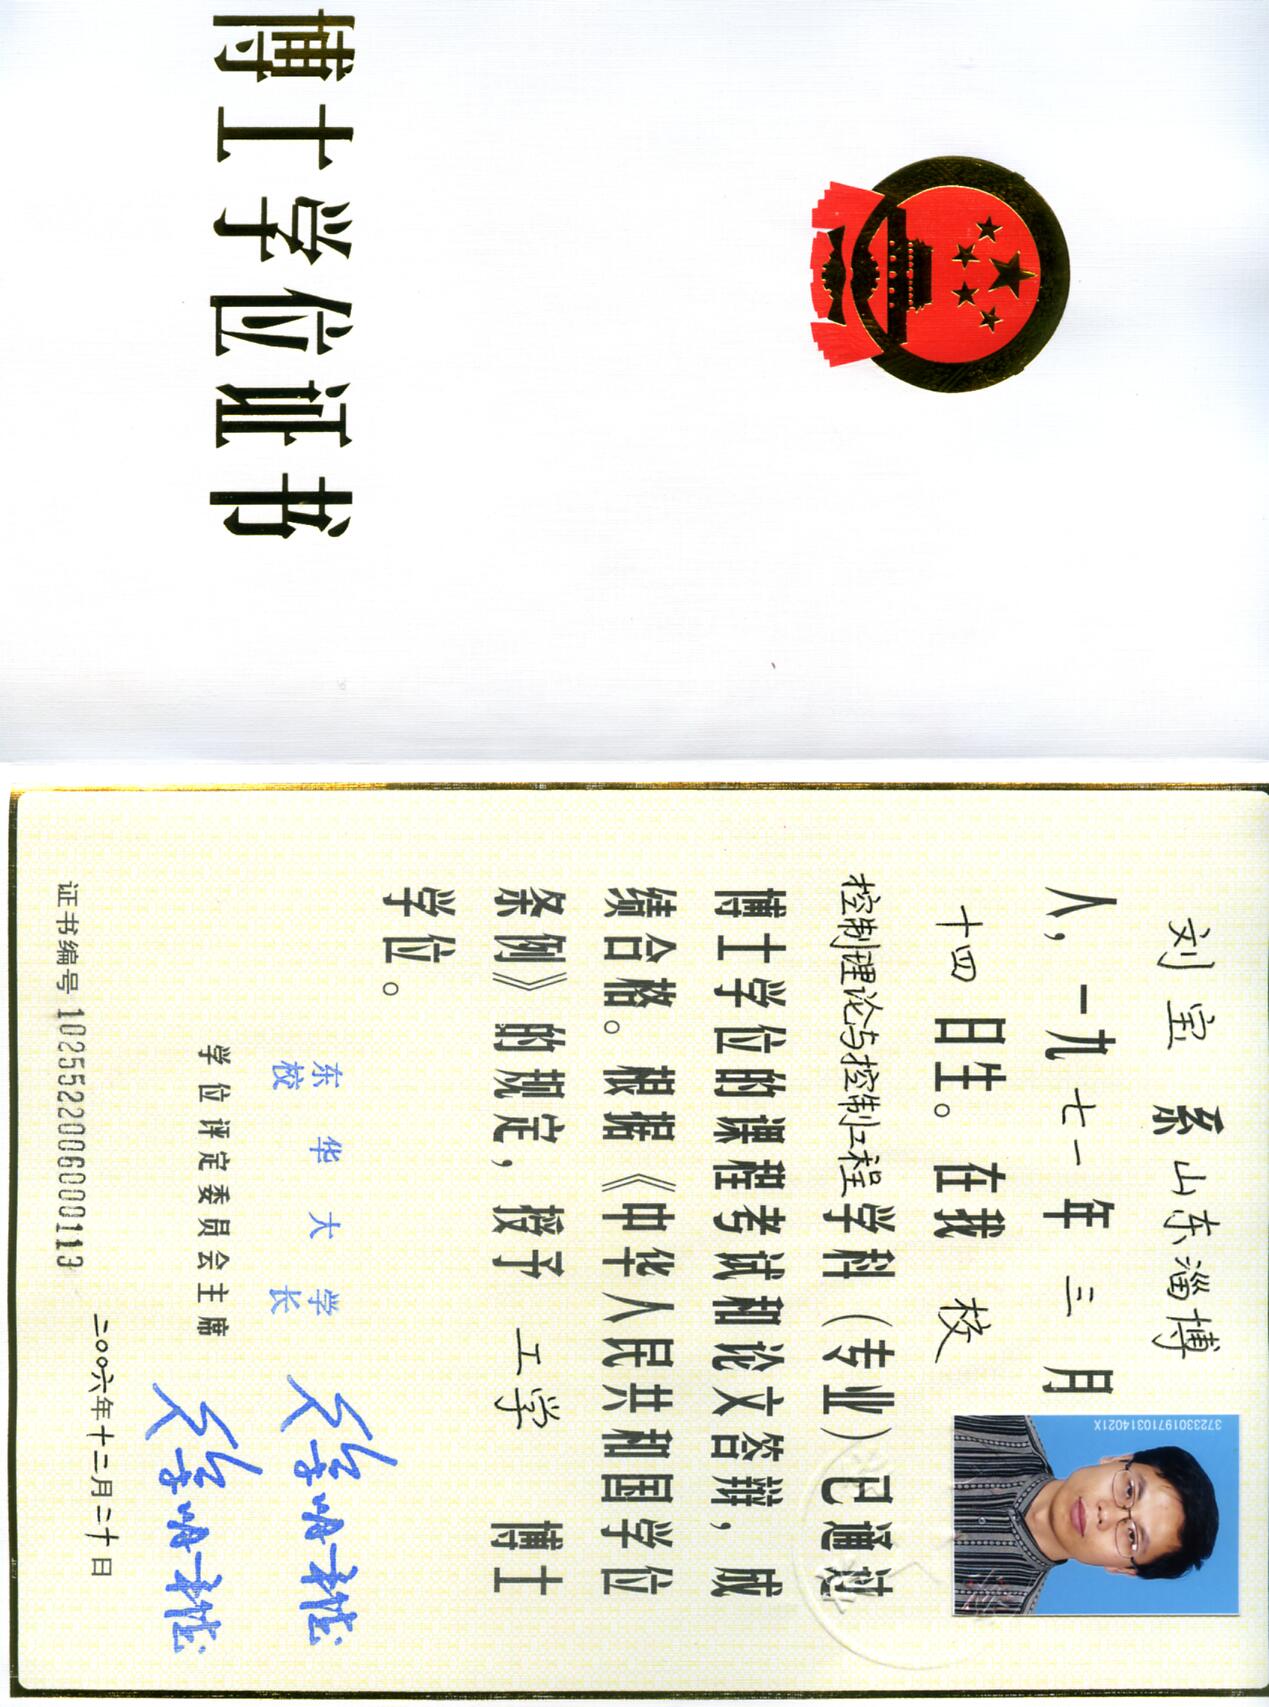 博士学位证书
刘宝 系山东淄博
人，一九七一年三月
十四日生。在我校
控制理论与控制工程学科（专业）已通过
博士学位的课程考试和论文答辩，成
绩合格。根据《中华人民共和国学位
条例》的规定，授予 工学 博士
学位。
东华大学
校长
学位评定委员会主席
证书编号 1025522006000113
二〇〇六年十二月二十日
37233019710314021X